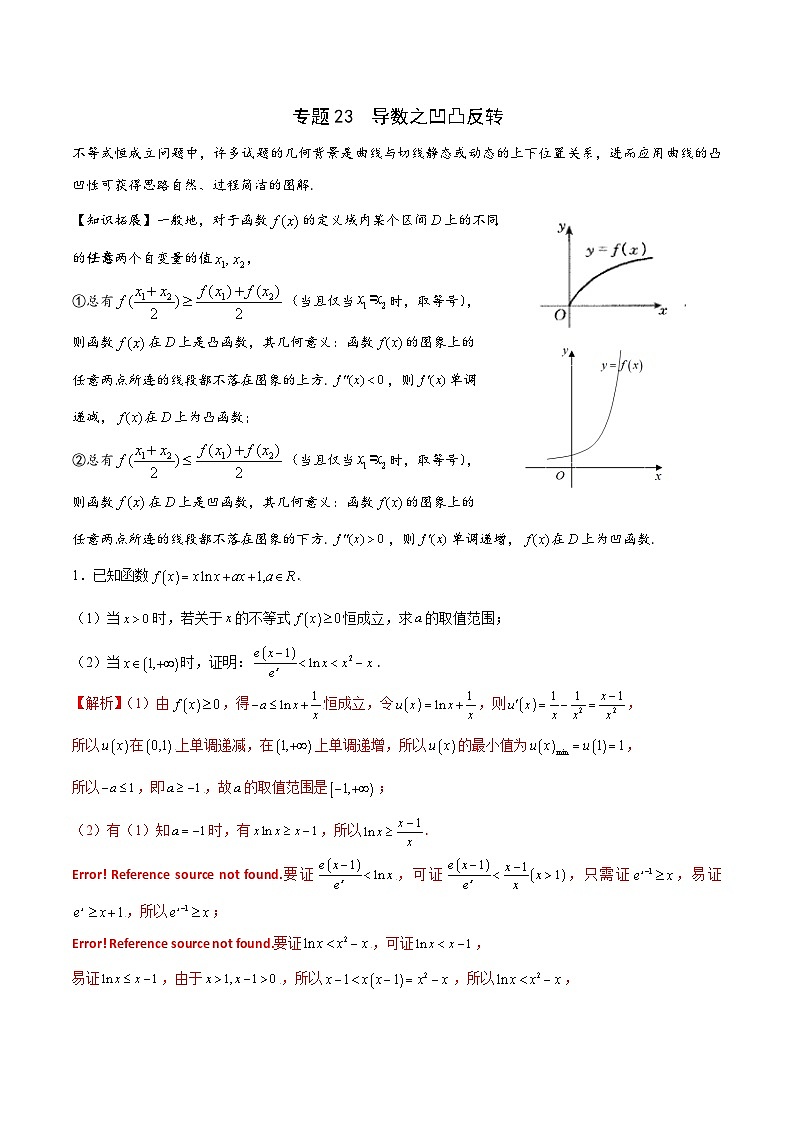 专题 23　导数之凹凸反转
不等式恒成立问题中，许多试题的几何背景是曲线与切线静态或动态的上下位置关系，进而应用曲线的凸
凹性可获得思路自然、过程简洁的图解．
【知识拓展】一般地，对于函数 f(x) 的定义域内某个区间 D 上的不同
的任意两个自变量的值 x₁, x₂，
①总有 f((x₁+x₂)/2) ≥ (f(x₁)+f(x₂))/2（当且仅当 x₁=x₂ 时，取等号），
则函数 f(x) 在 D 上是凸函数，其几何意义：函数 f(x) 的图象上的
任意两点所连的线段都不落在图象的上方．f″(x)<0，则 f′(x) 单调
递减，f(x) 在 D 上为凸函数；
②总有 f((x₁+x₂)/2) ≤ (f(x₁)+f(x₂))/2（当且仅当 x₁=x₂ 时，取等号），
则函数 f(x) 在 D 上是凹函数，其几何意义：函数 f(x) 的图象上的
任意两点所连的线段都不落在图象的下方．f″(x)>0，则 f′(x) 单调递增，f(x) 在 D 上为凹函数．
y
y=f(x)
O
x
y
y=f(x)
O
x
1．已知函数 f(x)=xlnx+ax+1,a∈R．
（1）当 x>0 时，若关于 x 的不等式 f(x)≥0 恒成立，求 a 的取值范围；
（2）当 x∈(1,+∞) 时，证明：e(x−1)/eˣ<lnx<x²−x．
【解析】（1）由 f(x)≥0，得 −a≤lnx+1/x 恒成立，令 u(x)=lnx+1/x，则 u′(x)=1/x−1/x²=(x−1)/x²，
所以 u(x) 在 (0,1) 上单调递减，在 (1,+∞) 上单调递增，所以 u(x) 的最小值为 u(x)min=u(1)=1，
所以 −a≤1，即 a≥−1，故 a 的取值范围是 [−1,+∞)；
（2）有（1）知 a=−1 时，有 xlnx≥x−1，所以 lnx≥(x−1)/x．
Error! Reference source not found.要证 e(x−1)/eˣ<lnx，可证 e(x−1)/eˣ<(x−1)/x(x>1)，只需证 eˣ⁻¹≥x，易证
eˣ≥x+1，所以 eˣ⁻¹≥x；
Error! Reference source not found.要证 lnx<x²−x，可证 lnx<x−1，
易证 lnx≤x−1，由于 x>1,x−1>0，所以 x−1<x(x−1)=x²−x，所以 lnx<x²−x，